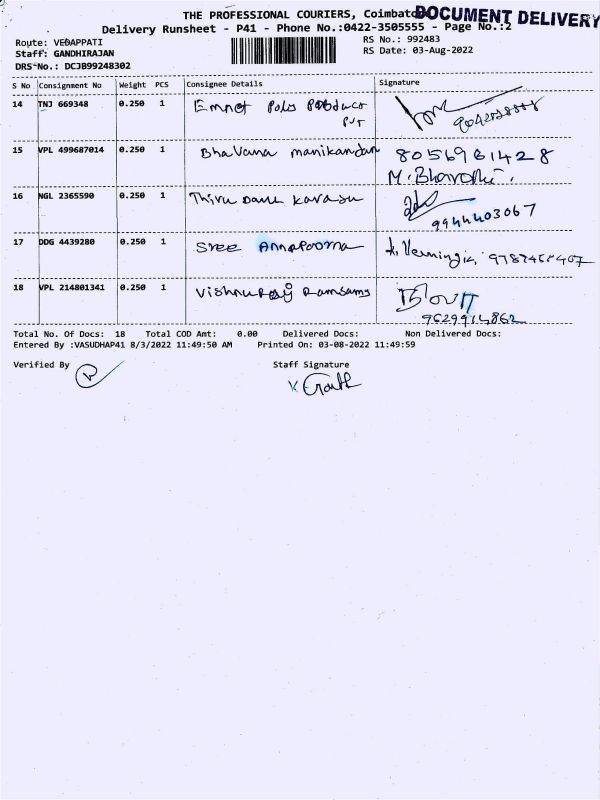 THE PROFESSIONAL COURIERS, Coimbato
DOCUMENT DELIVERY
Delivery Runsheet - P41 - Phone No.:0422-3505555 - Page No.:2
Route: VEDAPPATI
RS No.: 992483
Staff: GANDHIRAJAN
RS Date: 03-Aug-2022
DRS No.: DCJB99248302
S No Consignment No Weight PCS Consignee Details Signature
14 TNJ 669348 0.250 1
15 VPL 499687014 0.250 1 Bhavana manikandan 8056981428
M. Bharathi.
16 NGL 2365590 0.250 1
9944403067
17 DDG 4439280 0.250 1 Sree Annapoorna
18 VPL 214801341 0.250 1
9629914862
Total No. Of Docs: 18 Total COD Amt: 0.00 Delivered Docs: Non Delivered Docs:
Entered By :VASUDHAP41 8/3/2022 11:49:50 AM Printed On: 03-08-2022 11:49:59
Verified By Staff Signature